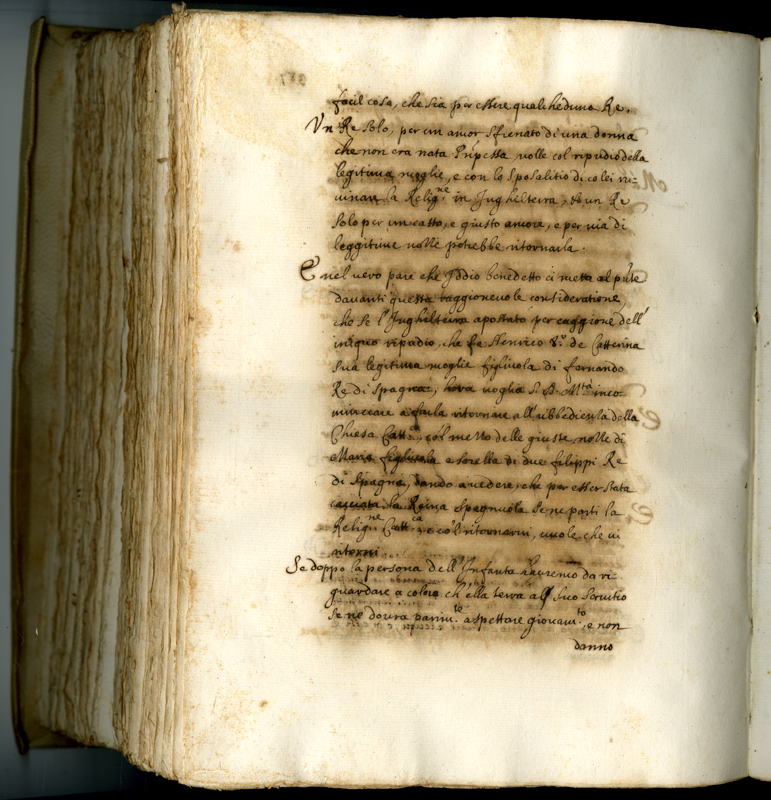 facil cosa, che sia per essere qualcheduno Re.
Un Re solo, per un amor sfrenato di una donna
che non era nata Pñpessa, uolle col ripudio della
legitima moglie, e con lo sposalitio di colei ro-
uinare la Relig.ne in Inghilterra, et un Re
solo per un casto, e giusto amore, e per uia di
leggitime nozze potrebbe ritornarla.
E nel uero pare che Iddio benedetto ci metta al pñte
dauanti questa raggioneuole consideratione,
che se l'Inghilterra apostatò per caggione dell'
iniquo ripudio, che fe Henrico 8.º de Catterina
sua legitima moglie figliuola di fernando
Re di Spagna, hora uoglia S. D. M.tà inco-
minciare a farla ritornare all'ubbedienza della
Chiesa Catt.ca, col mezzo delle giuste nozze di
Maria figliuola e sorella di due filippi Re
di Spagna, dando a uedere, che per esser stata
cacciata la Reina Spagnuola se ne partì la
Relig.ne Catt.ca, e col ritornarui, uuole che ui
ritorni.
Se doppo la persona dell'Infanta hauremo da ri-
guardare a coloro ch'ella terrà al suo seruitio
se ne dourà parim.te aspettare giouam.to, e non
danno